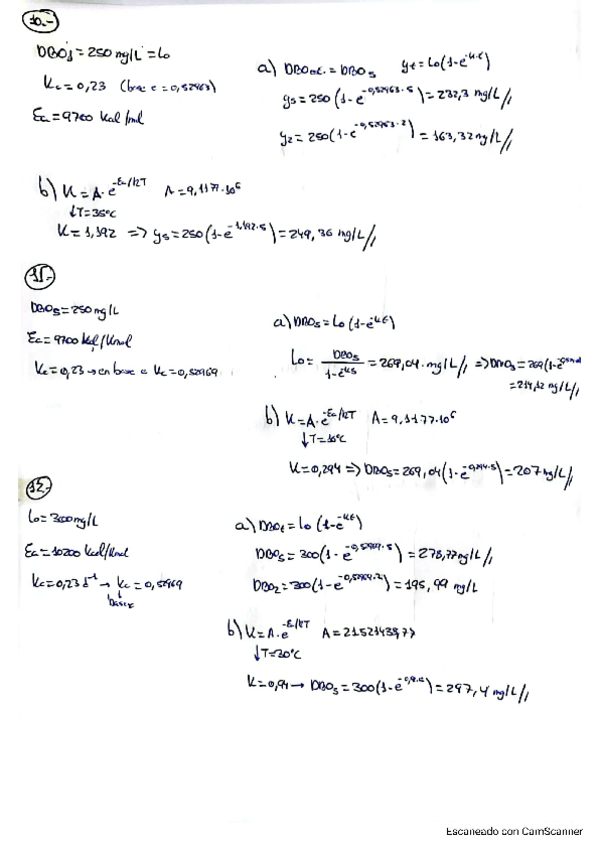 10.-
DBO₅=250 mg/L=Lo
Kc=0,23 (base e=0,52963)
Ea=9700 kcal/mol
a) DBOnt.=DBO₅ yt=Lo(1-e^-k·t)
y5=250(1-e^-0,52963·5)=232,3 mg/L//
y2=250(1-e^-0,52963·2)=163,32mg/L//
b) K=A·e^-Ea/RT A=9,1177·10⁶
↓T=35ºC
K=1,192 => y5=250(1-e^-1,192·5)=249,36 mg/L//
11.-
DBO₅=250mg/L
Ea=9700 kcal/kmol
Kc=0,23→en base e Kc=0,52969
a) DBO₅=Lo(1-e^-kt)
Lo= DBO₅ / 1-e^-k5 =269,04 mg/L// =>DBO₃=269(1-e
=214,12 mg/L//
b) K=A·e^-Ea/RT A=9,1177·10⁶
↓T=10ºC
K=0,294=>DBO₅=269,04(1-e^-0,294·5)=207mg/L//
12.-
Lo=300mg/L
Ea=10200 kcal/kmol
Kc=0,23 d⁻¹→ Kc=0,52969
↓
base e
a) DBOt=Lo(1-e^-kt)
DBO₅=300(1-e^-0,52969·5)=278,77mg/L//
DBO₂=300(1-e^-0,52969·2)=195,99 mg/L
b) K=A·e^-Ea/RT A=21521438,77
↓T=30ºC
K=0,94→ DBO₅=300(1-e )=297,4mg/L//
Escaneado con CamScanner